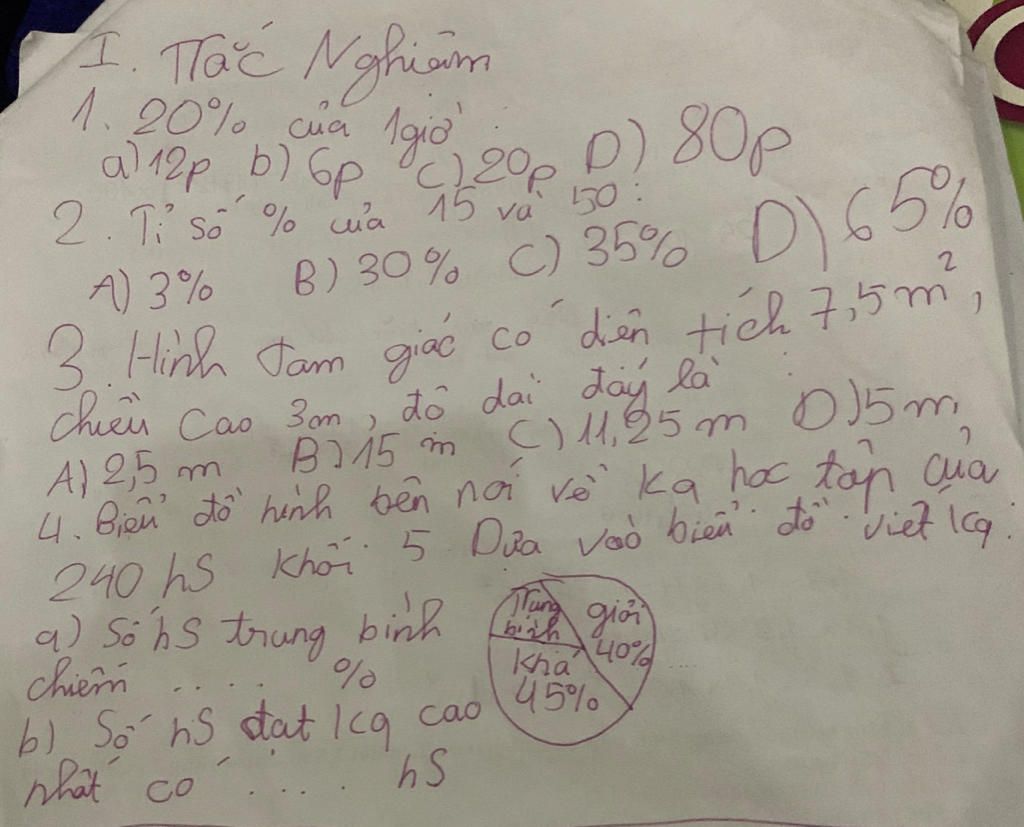 I. Trắc Nghiệm
1. 20% của 1giờ :
a) 12p b) 6p C) 20p D) 80p
2. Tỉ số % của 15 và 50:
A) 3% B) 30% C) 35% D) 65%
3. Hình tam giác có diện tích 7,5m²,
chiều cao 3m, độ dài đáy là :
A) 2,5 m B) 15 m C) 11,25 m D) 5 m.
4. Biểu đồ hình bên nói về kq học tập của
240 hS khối 5 Dựa vào biểu đồ viết kq.
a) Số hS trung bình
chiếm ..... %
b) Số hS đạt kq cao
nhất có ..... hS
Trung
bình
giỏi
40%
Khá
45%